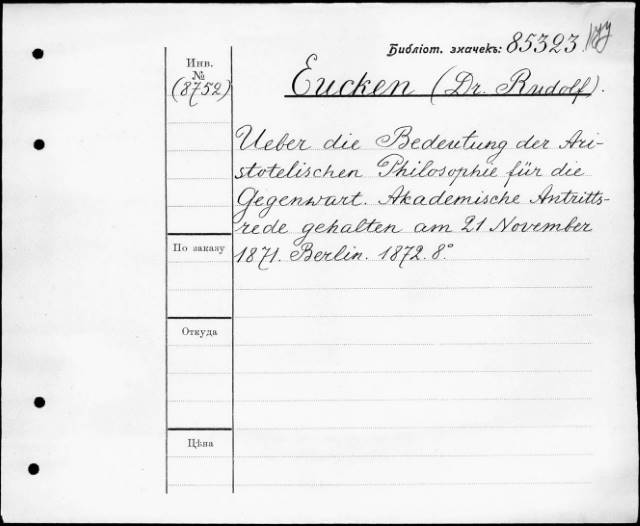 Библіот. значекъ: 85323
Инв.
№
(8752)
Eucken (Dr. Rudolf).
Ueber die Bedeutung der Ari-
stotelischen Philosophie für die
Gegenwart. Akademische Antritts-
rede gehalten am 21 November
1871. Berlin. 1872. 8°
По заказу
Откуда
Цѣна